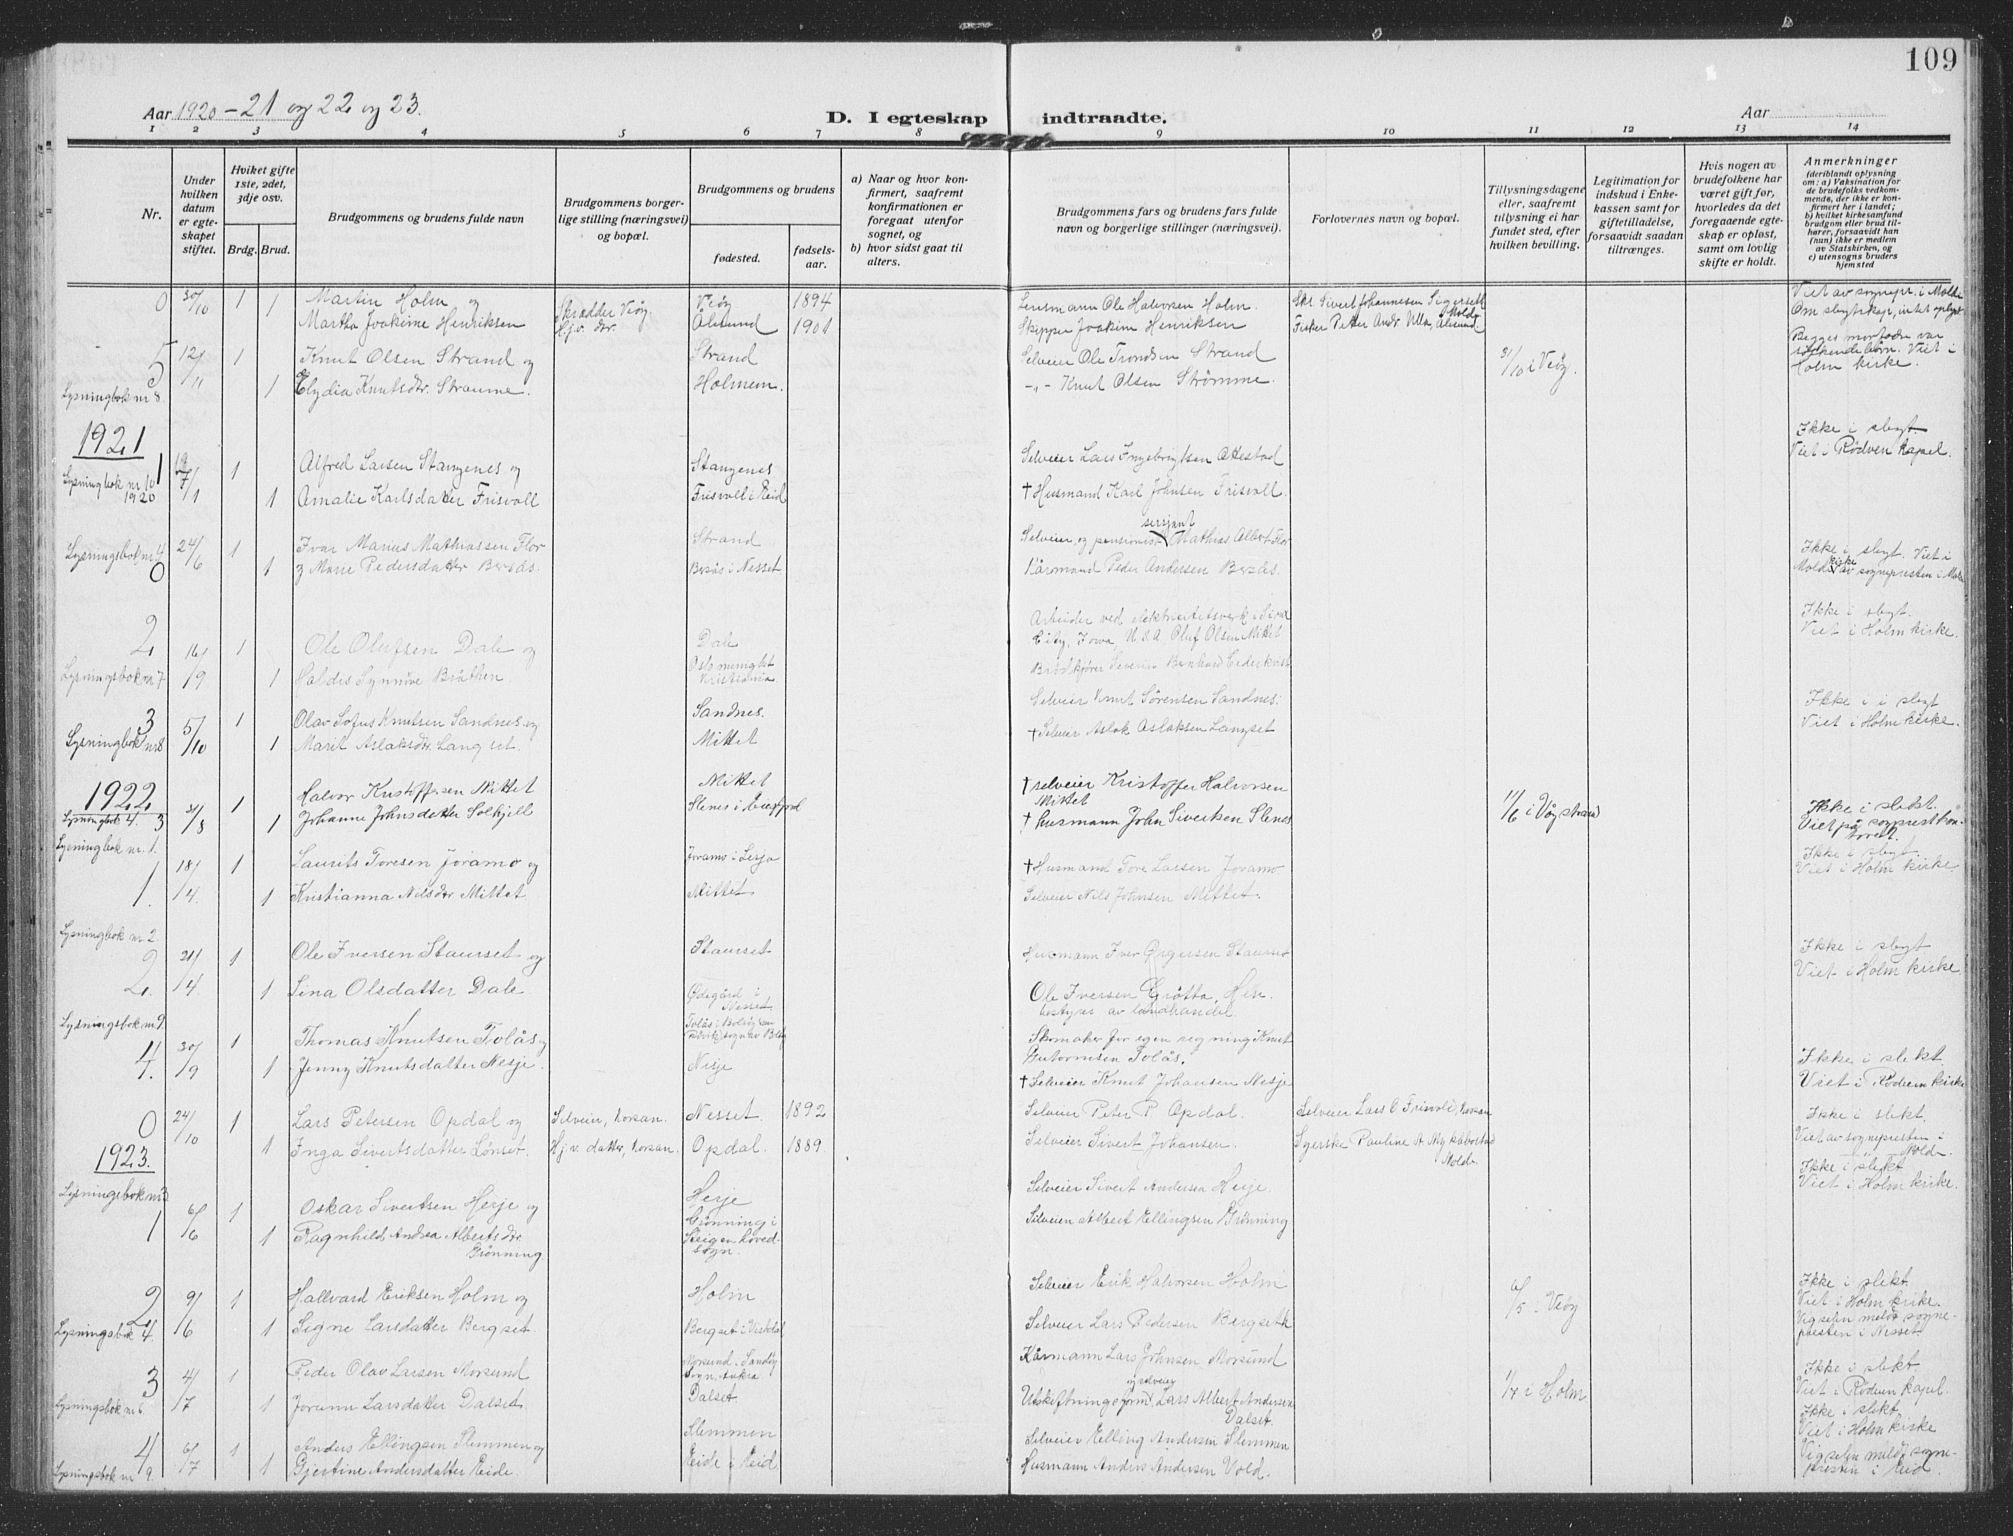 109
Aar 1920 - 21 og 22 og 23.
D. I egteskap indtraadte.
Aar
1 2 3 4 5 6 7 8 9 10 11 12 13 14
Nr.
Under hvilken datum er egteskapet stiftet.
Hviket gifte 1ste, 2det, 3dje osv.
Brdg. Brud.
Brudgommens og brudens fulde navn
Brudgommens borgerlige stilling (næringsvei) og bopæl.
Brudgommens og brudens
fødested. fødselsaar.
a) Naar og hvor konfirmert, saafremt konfirmationen er foregaat utenfor sognet, og
b) hvor sidst gaat til alters.
Brudgommens fars og brudens fars fulde navn og borgerlige stillinger (næringsvei).
Forlovernes navn og bopæl.
Tillysningsdagene eller, saafremt tillysning ei har fundet sted, efter hvilken bevilling.
Legitimation for indskud i Enkekassen samt for giftetilladelse, forsaavidt saadan tiltrænges.
Hvis nogen av brudefolkene har været gift før, hvorledes da det foregaaende egteskap er opløst, samt om lovlig skifte er holdt.
Anmerkninger (deriblandt oplysning om: a) Vaksination for de brudefolks vedkommende, der ikke er konfirmert her i landet; b) hvilket kirkesamfund brudgom eller brud tilhører, forsaavidt han (hun) ikke er medlem av Statskirken, og c) utensogns bruders hjemsted
0 30/10 1 Martin Holm og Skrædder Veøy. Veøy 1894 Lensmann Ole Halvorsen Holm. Ekr. Sivert Johannesen Sigerset Molde Viet av sognepr. i Molde
1 Martha Joakime Henriksen Hj.v. dtr. Ålesund 1901 Skipper Joakim Henriksen Fisker Petter Andr. Ulla, Ålesund. Om slegtskap intet oplyst
5 12/11 1 Knut Olsen Strand og Strand Selveier Ole Trondsen Strand 31/10 i Veøy. Begges morfædre var søskendebørn. Viet i Holm kirke.
Lysningbok nr 8. 1 Elydia Knutsdtr. Straume. Holmem. -"- Knut Olsen Strømme.
1921
1 7/1 1 Alfred Larsen Stangenes og Stangenes Selveier Lars Ingebrigtsen Ottestad Ikke i slegt. Viet i Rødven kapel.
Lysningbok nr 10 1920 1 Amalie Karlsdatter Frisvoll Frisvoll i Eid † Husmand Karl Johnsen Frisvoll.
Lysningsbok nr 4 0 24/6 1 Ivar Marius Mathiassen Flor Strand Selveier og pensionist sersjant Mathias Albert Flor
1 Marie Pedersdatter Bersås. Bersås i Nesset Kårmand Peder Andersen Bersås. Ikke i slegt. Viet i Molde kirke av sognepresten i Molde
2 16/9 1 Ole Olufsen Dale og Dale Arbeider ved elektricitetsverk i Sioux City, Iowa, U.S.A. Oluf Olsen Mittet Ikke i slegt. Viet i Holm kirke.
Lysningsbok nr 7. 1 Haldis Synnøve Bråthen. Oslo menighet Kristiania Brødkjører Severin Bernhard Cederkvist
3 5/10 1 Olav Sofus Knutsen Sandnes og Sandnes. Selveier Knut Sørensen Sandnes. Ikke i i slegt
Lysningbok nr 8 1 Marit Aslaksdtr. Langset. Mittet † Selveier Aslak Aslaksen Langset Viet i Holm kirke.
1922
Lysningbok 4. 3 31/8 1 Halvor Kristoffersen Mittet Mittet † selveier Kristoffer Halvorsen Mittet 11/6 i Vågstrand Ikke i slekt.
1 Johanne Johnsdatter Solhjell Slenes i † husmann John Sivertsen Slenes Viet på sogneprestkontoret.
Lysningbok nr. 1.
1. 18/4. 1 Laurits Toresen Joramo og Joramo i Lesja † Husmand Tore Larsen Joramo Ikke i slegt. Viet i Holm kirke
1 Kristianna Nilsdtr. Mittet Mittet Selveier Nils Johnsen Mittet.
Lysningbok nr. 2.
2. 21/4. 1 Ole Iversen Staurset og Staurset Husmann Iver Ørgersen Staurset Ikke i slegt
1 Lina Olsdatter Dale Ødegård i Nesset Ole Iversen Grøtta, Hen. bestyrer av landhandel. Viet i Holm kirke.
Lysningsbok nr. 9.
4. 30/9 1 Thomas Knutsen Tolås og Tolås i Bolsøy Skomaker for egen regning Knut Gutormsen Tolås. Ikke i slekt
1 Jenny Knutsdatter Nesje. Nesje † Selveier Knut Johansen Nesje Viet i Rødven kirke
0 24/10 1 Lars Petersen Opdal og Selveier, Torsan. Nesset. 1892 Selveier Peter P. Opdal. Selveier Lars O Frisvold, Torsan Ikke i slekt.
1 Inga Sivertsdatter Lønset. Hj.v. datter, Torsan. Opdal. 1889. Selveier Sivert Johansen. Syerske Pauline A. Myklebostad Molde. Viet av sognepresten i Molde.
1923.
Lysningsbok nr 3
1 6/6 1 Oskar Sivertsen Herje og Herje Selveier Sivert Andersen Herje. Ikke i slekt Viet i Holm kirke.
1 Ragnhild Andrea Albertsdtr. Grønning Grønning i Steigen hovedsogn. Selveier Albert Ellingsen Grønning
2 9/6 1 Hallvard Eriksen Holm og Holm Selveier Erik Halvorsen Holm 6/5 i Veøy Ikke i slekt. Viet i Holm kirke. Vigselen meldt sognepresten i Nesset.
Lysningsbok 4. 1 Signe Larsdatter Bergset Bergset i Vistdal Selveier Lars Pedersen Bergseth
3 4/7 1 Peder Olav Larsen Morsund Morsund i Sandøy Sogn, Aukra Kårmann Lars Johnsen Morsund 1/7 i Holm Ikke i slekt Viet i Rødven kapel.
Lysningsbok nr 6 1 Jorunn Larsdatter Dalset. Dalset. Utskiftningsform. og selveier Lars Albert Andersen Dalset.
4 6/7 1 Anders Ellingsen Slemmen og Slemmen Selveier Elling Andersen Slemmen Ikke i slekt. Viet i Holm kirke
Lysningsbok nr 9. 1 Gjertine Andersdatter Eide. Eide i Eid Husmann Anders Andersen Vold. Vigselen meldt sognepresten i Eid.